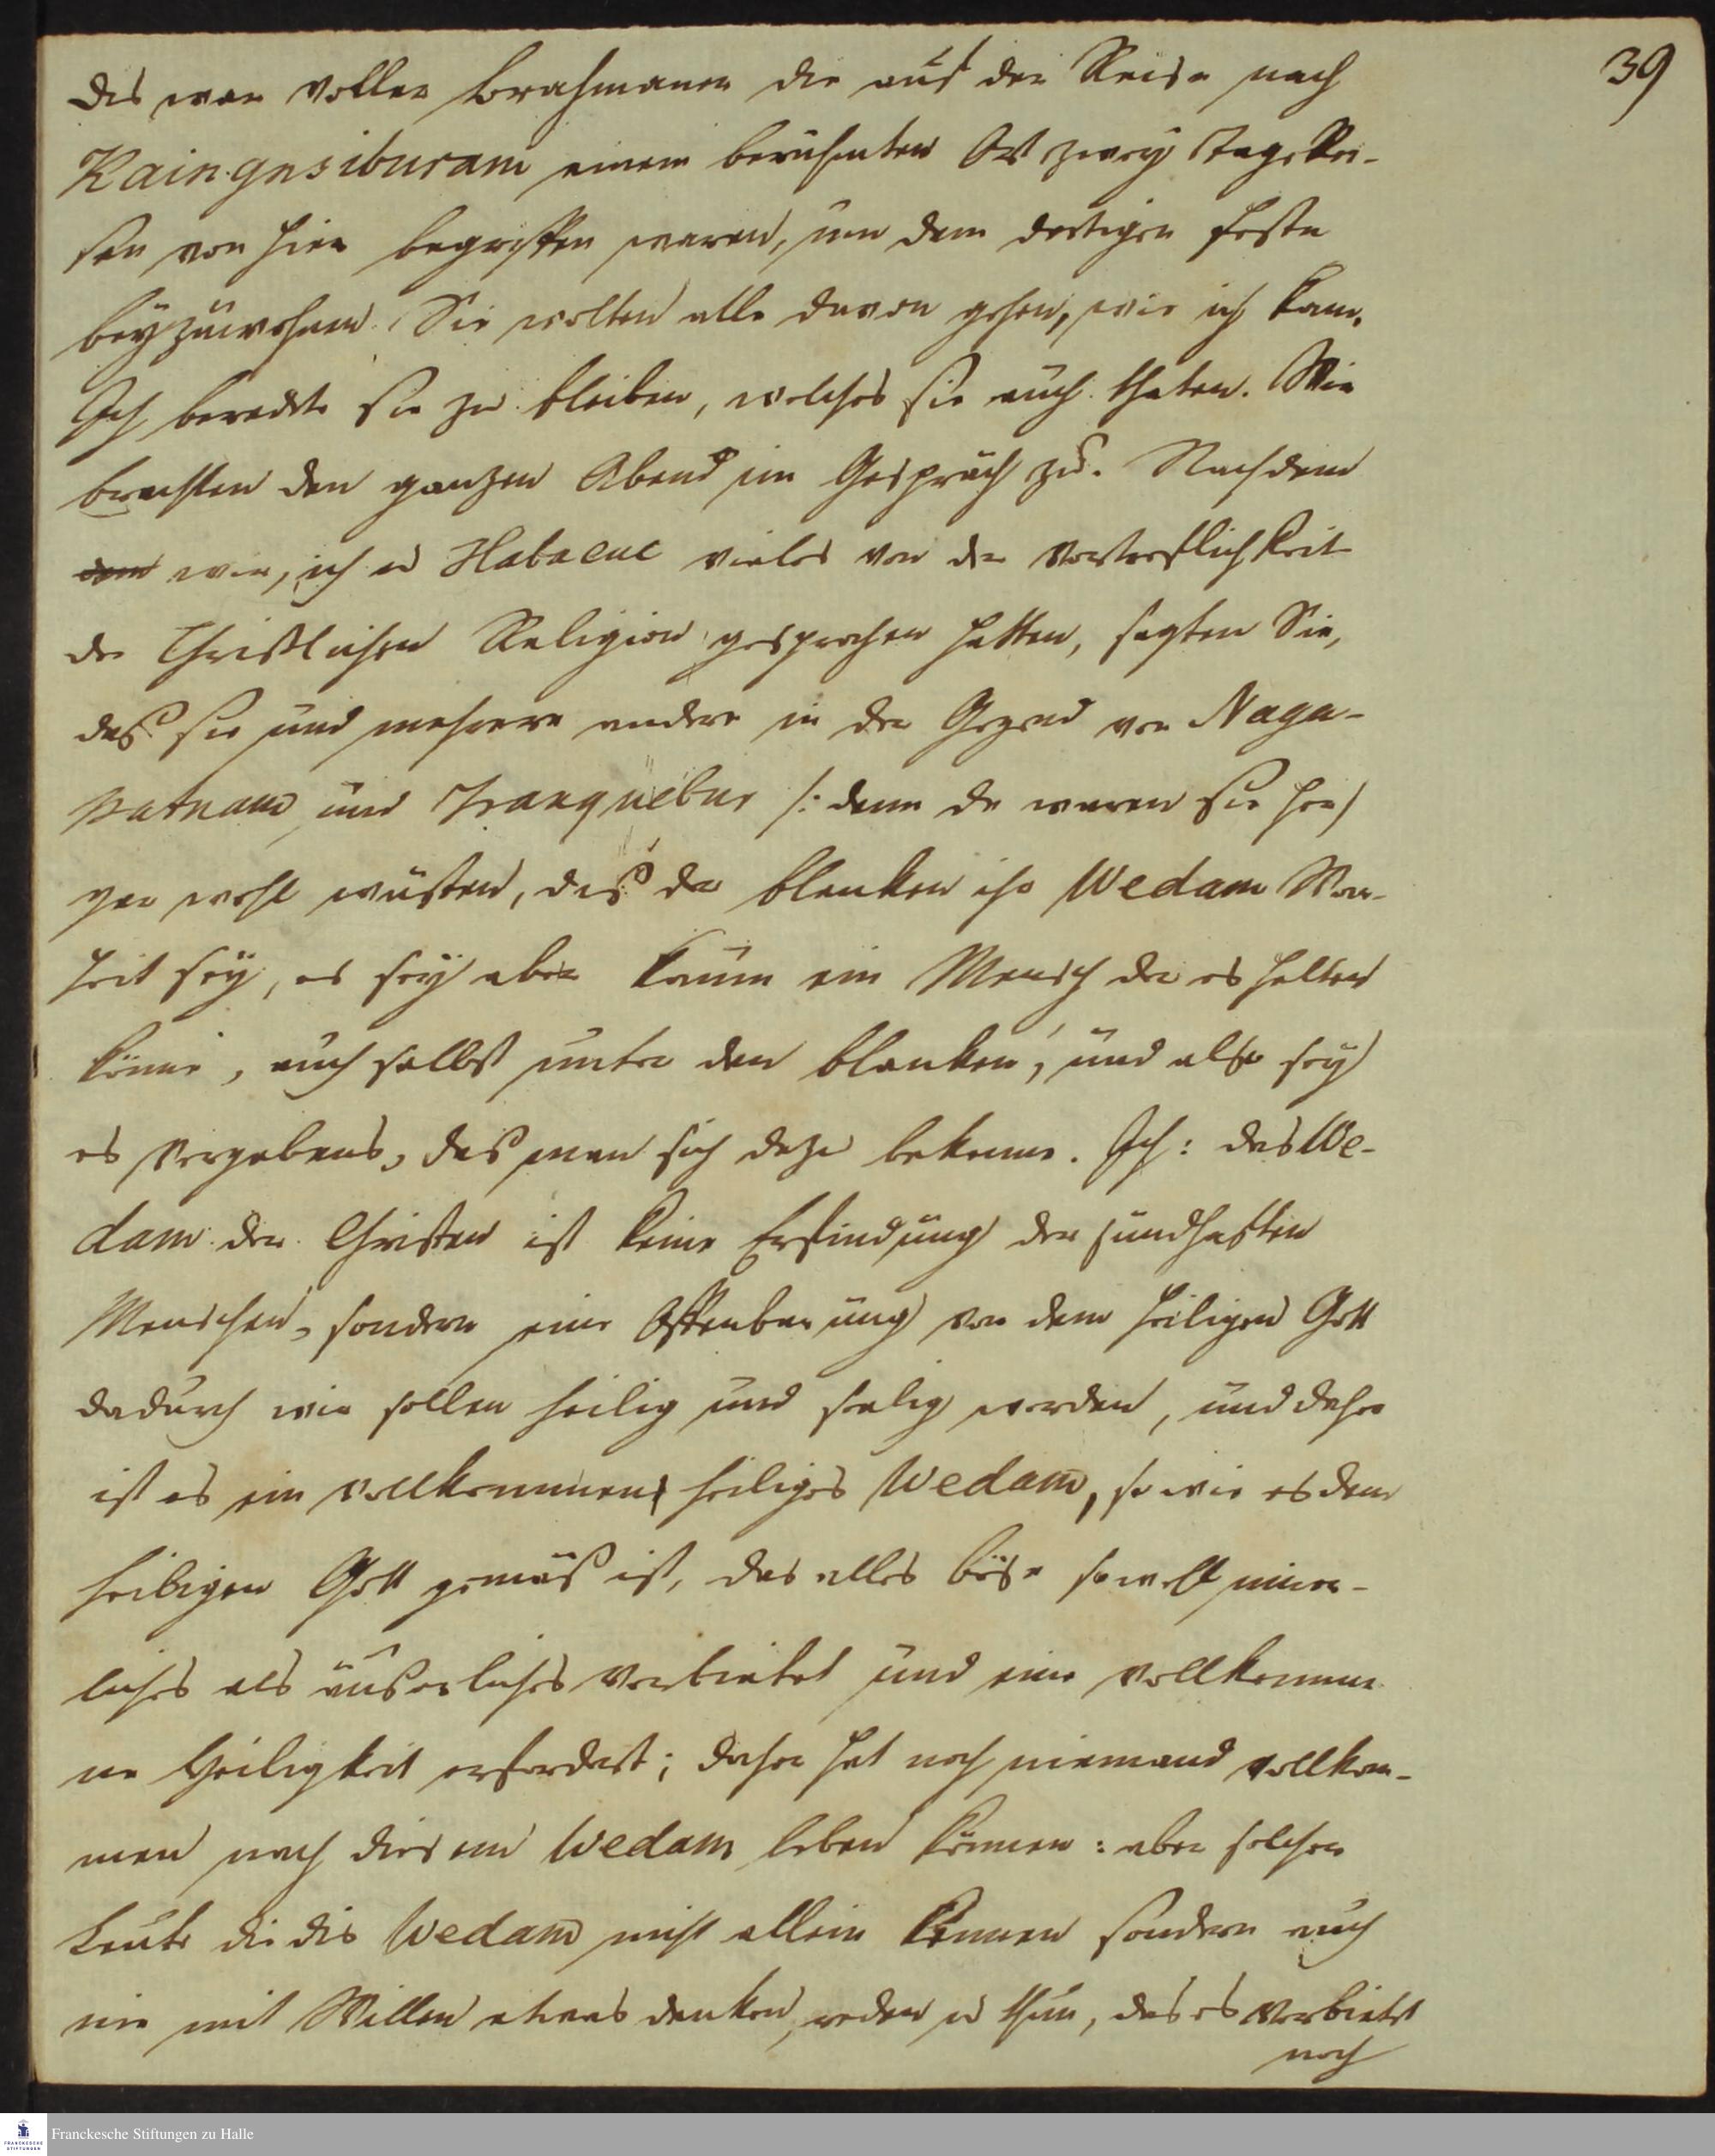 39
das war voller Brahmaner die auf der Reise nach
Kaingnsiburam einem berühmten Ort zwey Tage Rei-
sen von hier begriffen waren, um dem dortigen Feste
beyzuwohnen. Sie wolten alle davon gehen, wie ich kam.
Ich beredete sie zu bleiben, welches sie auch thaten. Wir
brachten den ganzen Abend im Gespräch zu. Nachdem
wir, ich u Habacuc vieles von der Vortreflichkeit
der Christlichen Religion gesprochen hatten, sagten Sie,
daß sie und mehrere andere in der Gegend von Naga-
patnam und Tranquebar /: denn da waren sie her/
gar wohl wüsten, daß der blanken ihr Wedam War-
heit sey, es sey aber kaum ein Mensch der es halten
könne, auch selbst unter den blanken, und also sey
es vergebens, daß man sich dazu bekenne. Ich: das We-
dam der Christen ist keine Erfindung der sündhaften
Menschen, sondern eine Offenbarung von dem heiligen Gott
dadurch wir sollen heilig und seelig werden, und daher
ist es ein vollkommen heiliges Wedam, so wie es dem
heiligen Gott gemäß ist, das alles böse sowohl inner-
liches als äußerliches verbietet und eine vollkomme
ne Heiligkeit erfordert; daher hat noch niemand vollkom-
men nach diesem Wedam leben können: aber solcher
Leute die dis Wedam nicht allein kennen sondern auch
nie mit Willen etwas denken, reden u thun, das es verbietet
noch
Franckesche Stiftungen zu Halle
FRANCKESCHE
STIFTUNGEN